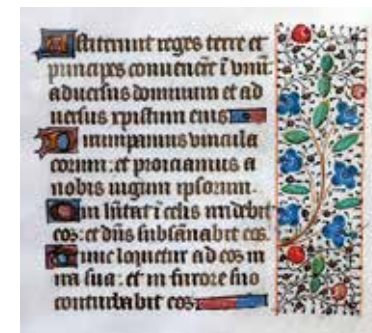 Astiterunt reges terre et
principes convenerūt ī unū
adversus dominum et ad
versus xpistum eius
Dirumpamus vincula
eorum: et proiciamus a
nobis iugum ipsorum.
Qui hītat ī celis irridebit
eos: et dn̄s subsannabit eos.
Tunc loquetur ad eos in
ira sua: et in furore suo
conturbabit eos